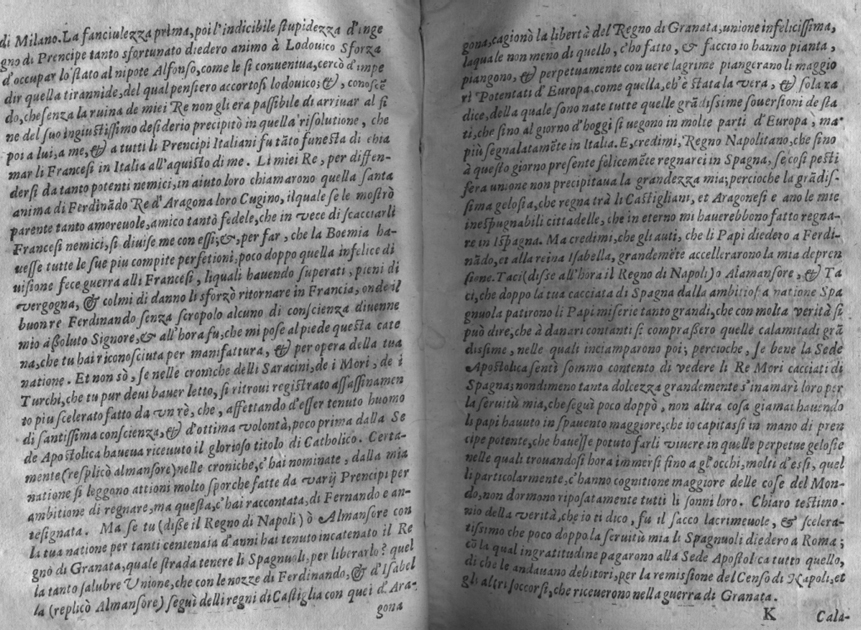 di Milano. La fanciulezza prima, poi l'indicibile stupidezza d'inge
gno di Prencipe tanto sfortunato diedero animo à Lodouico Sforza
d'occupar lo stato al nipote Alfonso, come le si conuentua, cercò d'impe
dir quella tirannide, del qual pensiero accortosi lodouico; &, conoscē
do, che senza la ruina de miei Re non gli era passibile di arriuar al fi
ne del suo ingiustissimo desiderio precipitò in quella risolutione, che
poi a lui, a me, & a tutti li Prencipi Italiani fu tāto funesta di chia
mar li Francesi in Italia all'aquisto di me. Li miei Re, per diffen-
dersi da tanto potenti nemici, in aiuto loro chiamarono quella santa
anima di Ferdinādo Re d'Aragona loro Cugino, il quale se le mostrò
parente tanto amoreuole, amico tantò fedele, che in vece di scacciarli
Francesi nemici, si diuise me con essi; &, per far, che la Boemia ha-
uesse tutte le sue piu compite perfetioni, poco doppo quella infelice di
uisione fece guerra alli Francesi, liquali hauendo superati, pieni di
vergogna, & colmi di danno li sforzò ritornare in Francia, onde il
buon re Ferdinando senza scropolo alcuno di conscienza diuenne
mio assoluto Signore, & all'hora fu, che mi pose al piede questa cate
na, che tu hai riconosciuta per manifattura, & per opera della tua
natione. Et non sò, se nelle croniche delli Saracini, de i Mori, de i
Turchi, che tu pur deui hauer letto, si ritroui registrato assassinamen
to piu scelerato fatto da vn rè, che, affettando d'esser tenuto huomo
di santissima conscienza, & d'ottima volontà, poco prima dalla Se
de Apostolica haueua riceuuto il glorioso titolo di Catholico. Certa-
mente (respicò almansore) nelle croniche, c'hai nominate, dalla mia
natione si leggono attioni molto sporche fatte da varij Prencipi per
ambitione di regnare, ma questa, c'hai raccontata, di Fernando e an-
tesignata. Ma se tu (disse il Regno di Napoli) ò Almansore con
la tua natione per tanti centenaia d'anni hai tenuto incatenato il Re
gno di Granata, quale strada tenere li Spagnuoli, per liberarlo? quel
la tanto salubre Vnione, che con le nozze di Ferdinando, & d'Isabel
la (replicò Almansore) seguì delli regni di Castiglia con quei d'Ara-
gona
gona, cagionò la libertà del Regno di Granata; unione infelicissima,
laquale non meno di quello, c'hò fatto, & faccio io hanno pianta,
piangono, & perpetuamente con uere lagrime piangerano li maggio
ri Potentati d'Europa, come quella, ch'è stata la vera, & sola ra
dice, della quale sono nate tutte quelle grādissime souersioni de sta
ti, che sino al giorno d'hoggi si uegono in molte parti d'Europa, ma
più segnalatamēte in Italia. E, credimi, Regno Napolitano, che sino
à questo giorno presente folicemēte regnarei in Spagna, se così pesti
fera unione non precipitaua la grandezza mia; percioche la grādis-
sima gelosia, che regna trà li Castigliani, et Aragonesi e ano le mie
inespugnabili cittadelle, che in eterno mi hauerebbono fatto regna-
re in Ispagna. Ma credimi, che gli auti, che li Papi diedero a Ferdi-
nādo, et alla reina Isabella, grandemēte accellerarono la mia depren
sione. Taci (disse all'hora il Regno di Napoli) o Alamansore, & Ta
ci, che doppo la tua cacciata di Spagna dalla ambitiosa natione Spa
gnuola patirono li Papi miserie tanto grandi, che con molta verità si
può dire, che à danari contanti si comprassero quelle calamitadi grā
dissime, nelle quali inciamparono poi; percioche, se bene la Sede
Apostolica sentì sommo contento di vedere li Re Mori cacciati di
Spagna; nondimeno tanta dolcezza grandemente s'inamari loro per
la seruitù mia, che seguì poco doppò, non altra cosa giamai hauendo
li papi hauuto in spauento maggiore, che io capitassi in mano di pren
cipe potente, che hauesse potuto farli viuere in quelle perpetue gelosie
nelle quali trouandosi hora immersi fino a gl'occhi, molti d'essi, quel
li particolarmente, c'hanno cognitione maggiore delle cose del Mon-
do, non dormono riposatamente tutti li sonni loro. Chiaro testimo.
nio della verità, che io ti dico, fu il sacco lacrimeuole, & scelera-
tissimo che poco doppo la seruitù mia li Spagnuoli diedero a Roma;
cō la qual ingratitudine pagarono alla Sede Apostolica tutto quello,
di che le andauano debitori, per la remissione del Censo di Napoli, et
gli altri soccorsi, che riceuerono nella guerra di Granata.
K Cala-